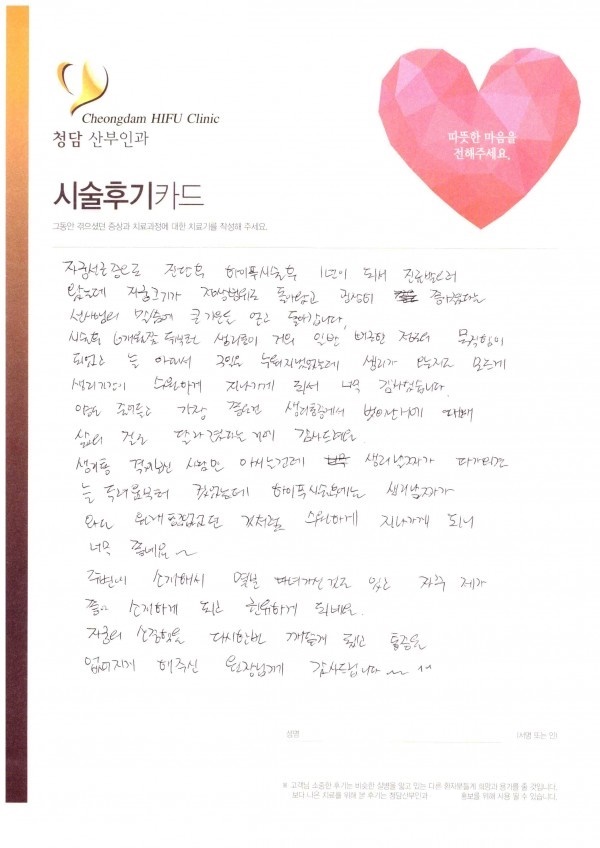 Cheongdam HIFU Clinic
청담 산부인과
따뜻한 마음을
전해주세요.
시술후기카드
그동안 겪으셨던 증상과 치료과정에 대한 치료기를 작성해 주세요.
자궁선근증으로 진단후 하이푸시술후 1년이 되서 진료받으러
왔는데 자궁크기가 정상범위로 돌아왔고 굉장히 좋아졌다는
선생님의 말씀에 큰 기쁨을 얻고 돌아갑니다.
시술후 6개월쯤 생리통이 거의 일반
피었고 늘 아파서 누워지냈었는데 생리가 모르게
생리기간이 수월하게 지나가게 되서 너무 감사했습니다.
약도 줄어들고 가장 생리통에서 벗어나게
삶의 질도 달라졌다는 거에 감사드려요.
생리통 겪어보신 사람만 아시는건데 생리날짜가 다가오면
늘 두려움부터 하이푸시술후에는 생리날짜가
와도 것처럼 수월하게 지나가게 되니
너무 좋네요~
주변에 소개해서 몇분 다녀가신걸로 있고 자주 제가
소개하게 되고 권유하게 되네요.
자궁의 소중함을 다시한번 깨닫게 됐고 통증을
없어지게 해주신 원장님께 감사드립니다~ ^^
성명
(서명 또는 인)
※ 고객님 소중한 후기는 비슷한 질병을 앓고 있는 다른 환자분들께 희망과 용기를 줄 것입니다.
보다 나은 치료를 위해 본 후기는 청담산부인과 홍보를 위해 사용 될 수 있습니다.